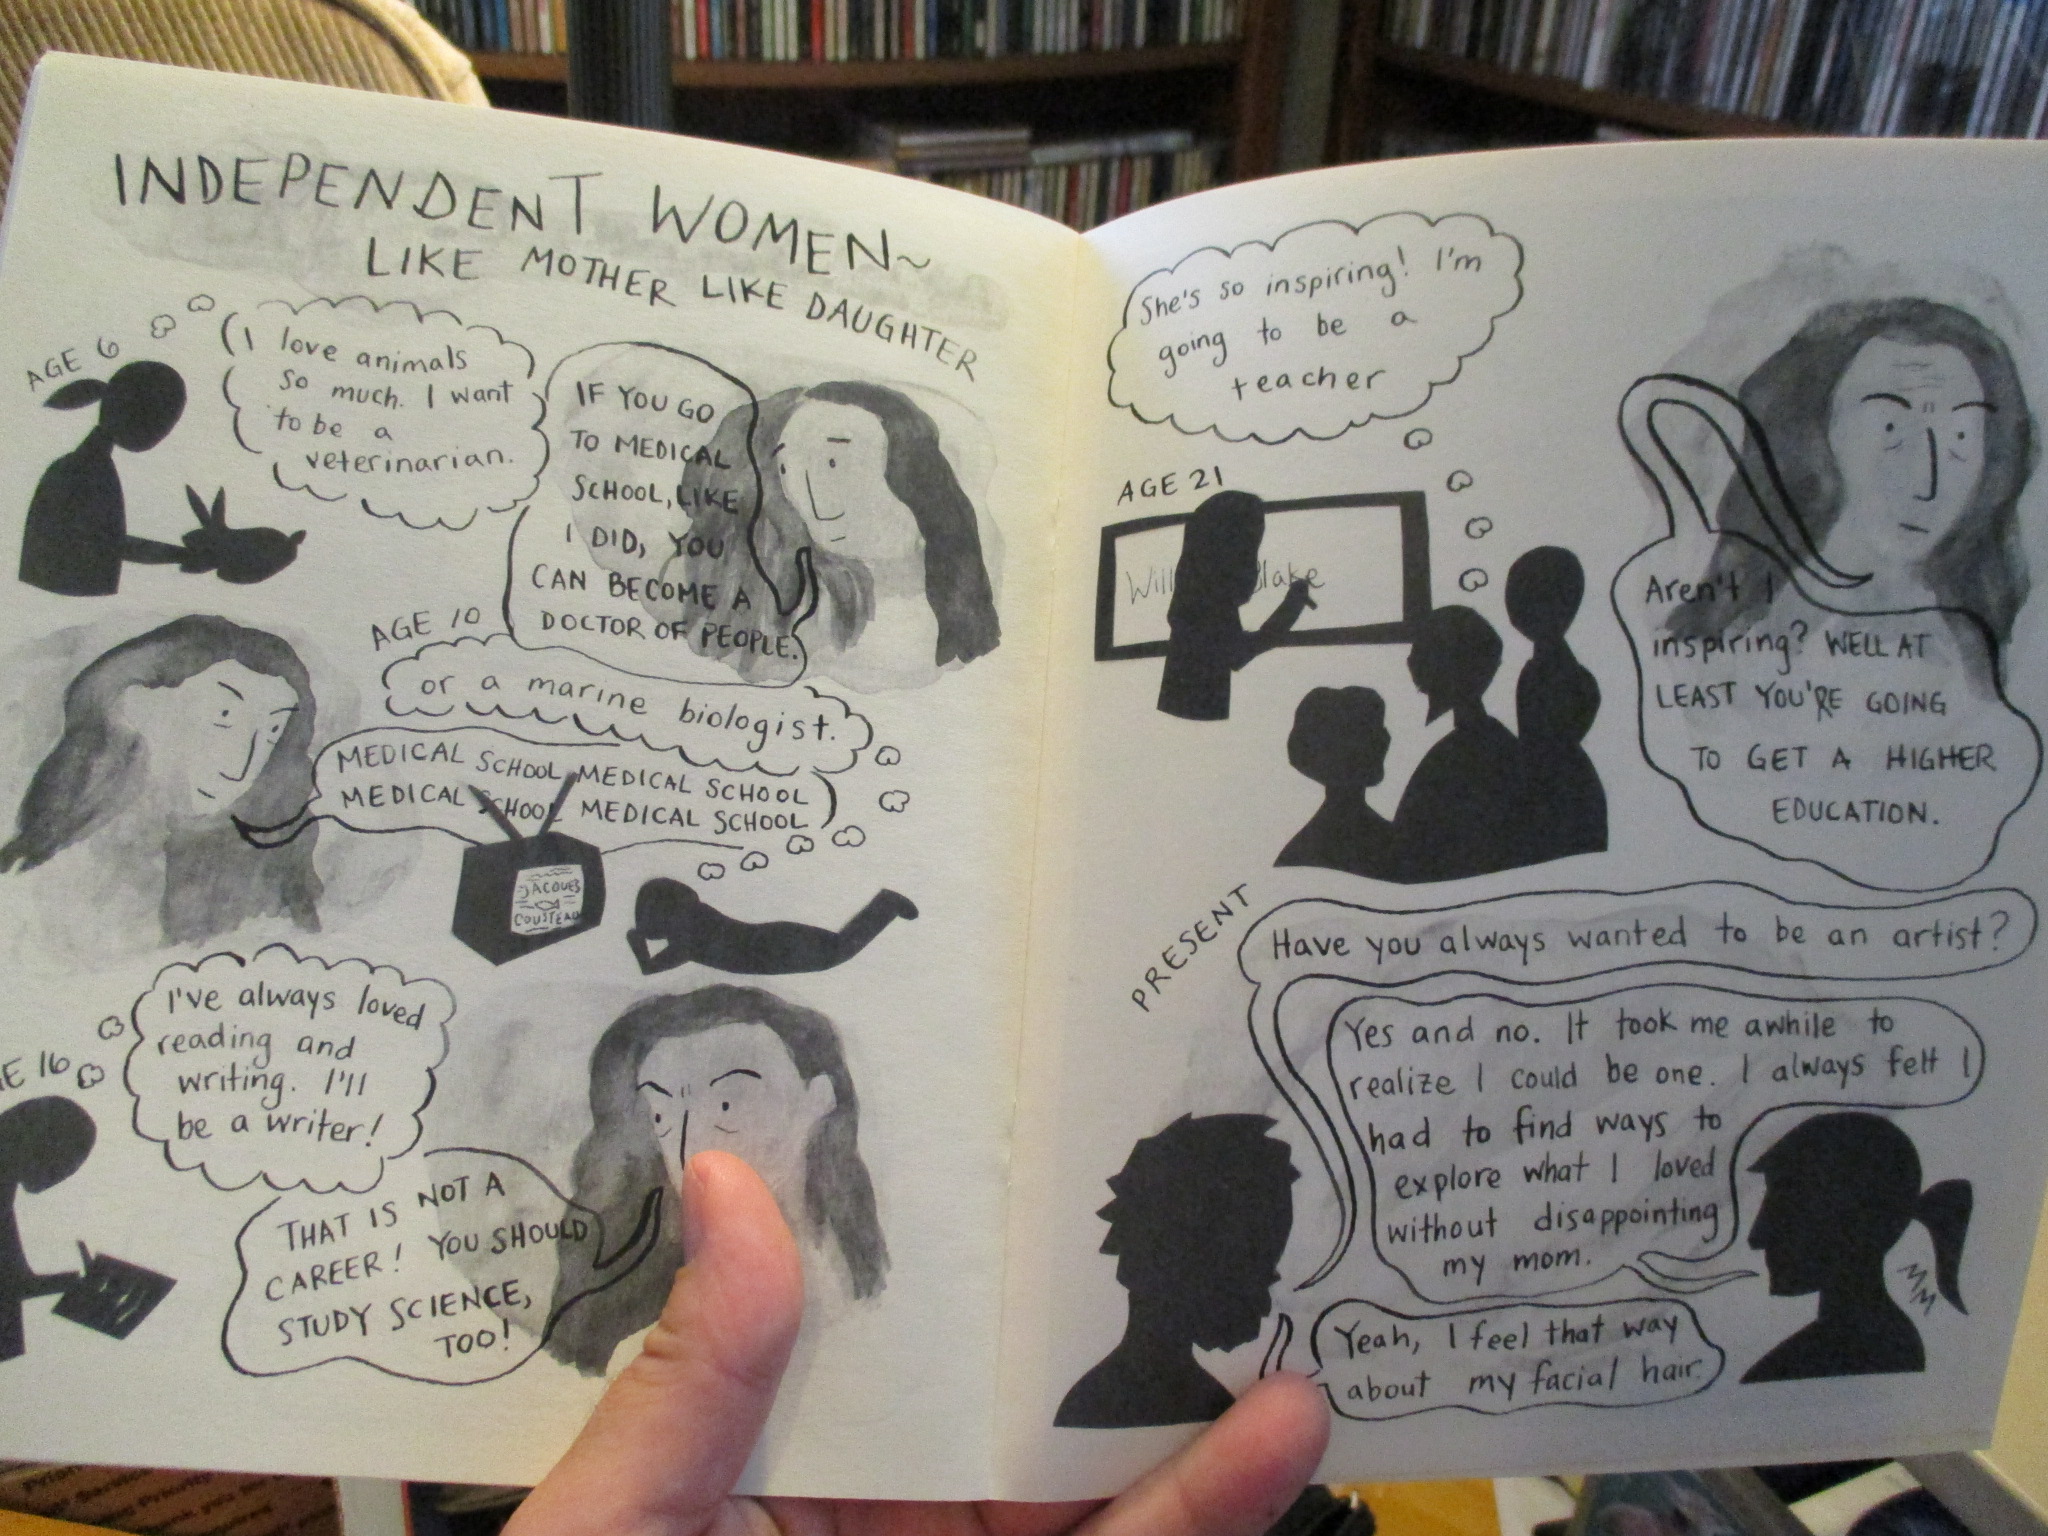 INDEPENDENT WOMEN~
LIKE MOTHER LIKE DAUGHTER
AGE 6
I love animals
so much. I want
to be a
veterinarian.
IF YOU GO
TO MEDICAL
SCHOOL, LIKE
I DID, YOU
CAN BECOME A
DOCTOR OF PEOPLE.
AGE 10
or a marine biologist.
MEDICAL SCHOOL MEDICAL SCHOOL
MEDICAL SCHOOL MEDICAL SCHOOL
JACQUES
COUSTEAU
GE 16
I've always loved
reading and
writing. I'll
be a writer!
THAT IS NOT A
CAREER! YOU SHOULD
STUDY SCIENCE,
TOO!
She's so inspiring! I'm
going to be a
teacher
AGE 21
Will Blake
Aren't I
inspiring? WELL AT
LEAST YOU'RE GOING
TO GET A HIGHER
EDUCATION.
PRESENT
Have you always wanted to be an artist?
Yes and no. It took me awhile to
realize I could be one. I always felt I
had to find ways to
explore what I loved
without disappointing
my mom.
Yeah, I feel that way
about my facial hair.